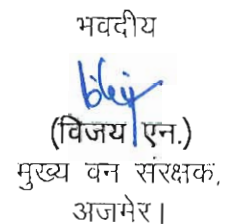 भवदीय
(विजय एन.)
मुख्य वन संरक्षक,
अजमेर।